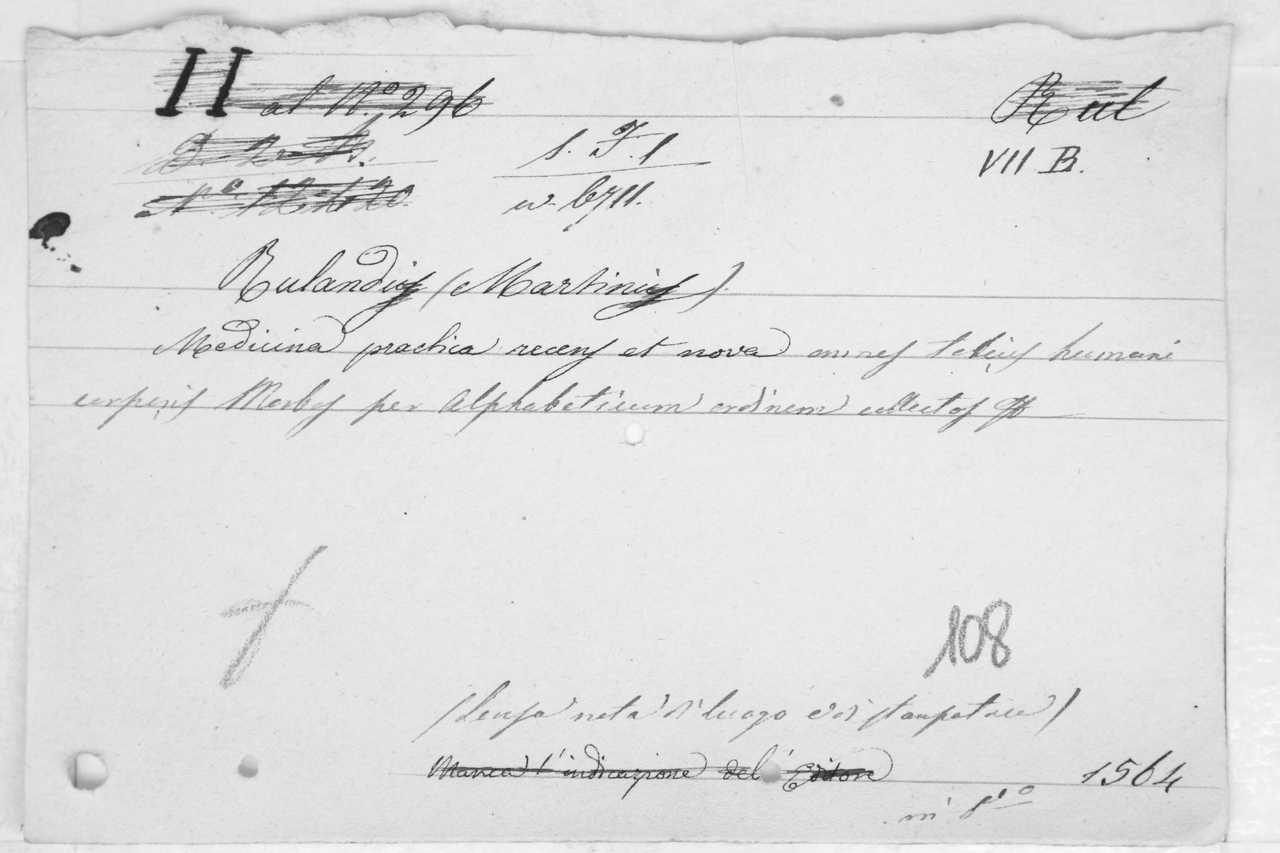 II al N.º 296
Rul
VII B.
S. F. 1
Nº 12
w. 6711.
Rulandus (Martinus)
Medicina practica recens et nova omnes totius humani
corporis Morbos per Alphabeticum ordinem collectos
108
(Senza nota di luogo e di stampatore)
Manca l'indicazione del Editore
1564
in 8º